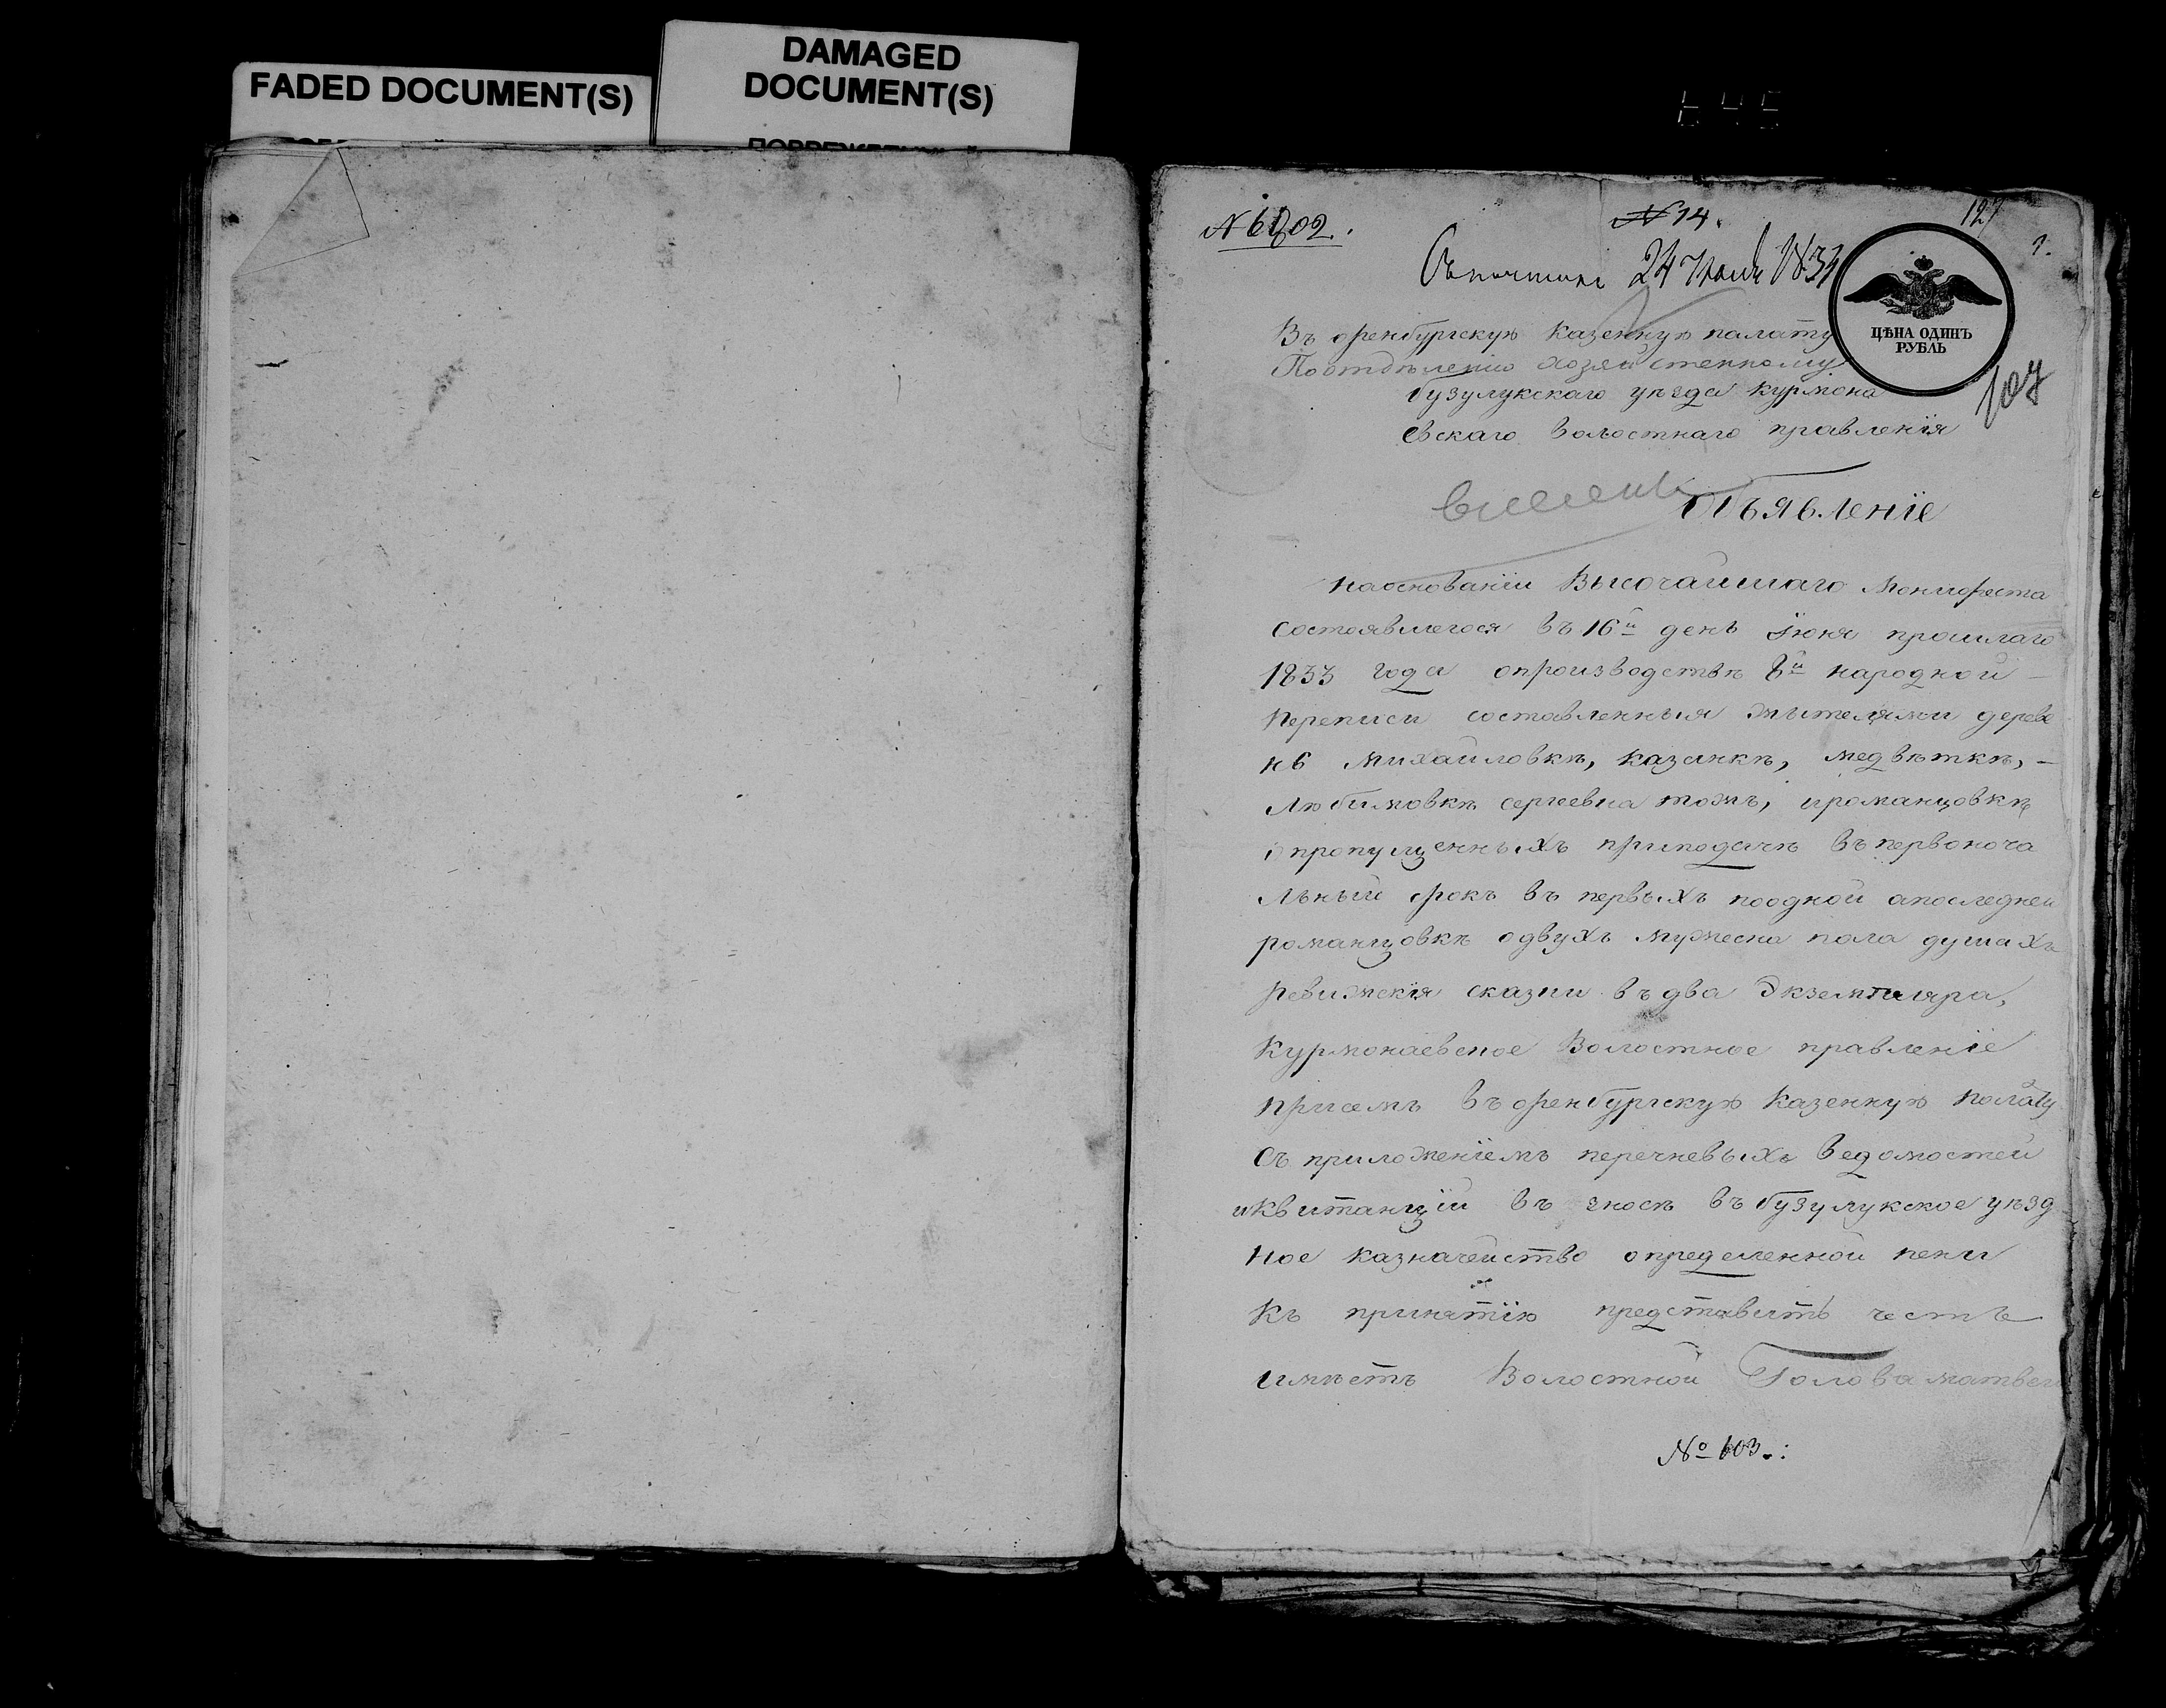 FADED DOCUMENT(S)
DAMAGED
DOCUMENT(S)
№ 14.
127
Съ почтою 24 Июля 1834
ЦѢНА ОДИНЪ
РУБЛЬ
107
Въ оренбургскую Казенную палату
По отдѣленію хозяйственному
бузулукскаго уѣзда курмона
евскаго волостнаго правленія
Объявленіе
на основаніи Высочайшаго Монифеста
состоявшегося въ 16й день їюня прошлаго
1833 года о производствѣ 8й народной
переписи составленныя жителями дереве
нь михайловкѣ, казанкѣ, медвѣткѣ,
любимовкѣ сергеевка тожъ, и романцовкѣ
о пропущенныхъ при подачѣ въ первонача
льный срокъ въ первыхъ по одной а последней
романцовкѣ о двухъ мужеска пола душахъ
ревижскія сказки въ два Экземпляра,
Курмонаевское Волостное правленіе
при семъ въ оренбургскую Казенную полату
Съ приложеніемъ перечневыхъ ведомостей
и квитанціи въ зносѣ въ бузулукское уѣзд
ное казначейство определенной пени
Къ принятію представить честь
имѣетъ Волостной Голова матвей
№ 603.